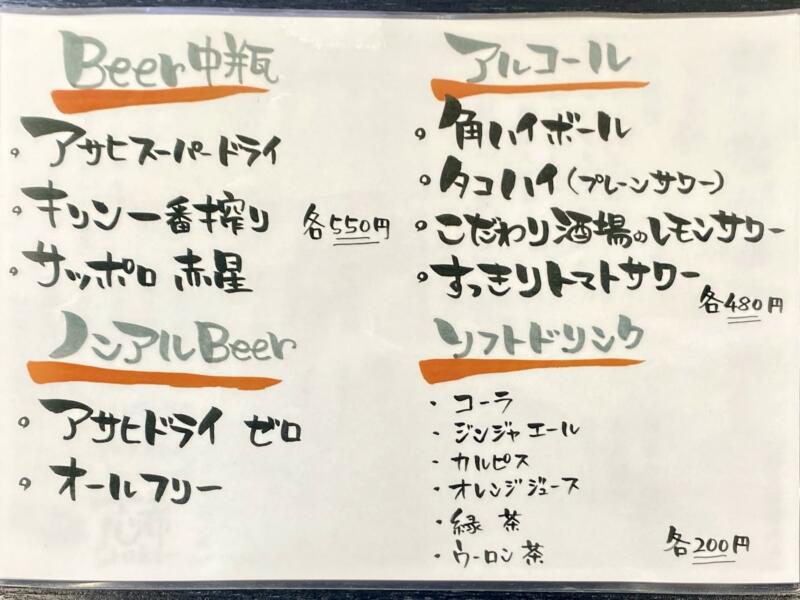 Beer中瓶
アサヒスーパードライ
キリン一番搾り
各550円
サッポロ 赤星
ノンアルBeer
アサヒドライ ゼロ
オールフリー
アルコール
角ハイボール
タコハイ(プレーンサワー)
こだわり酒場のレモンサワー
すっきりトマトサワー
各480円
ソフトドリンク
・コーラ
・ジンジャエール
・カルピス
・オレンジジュース
・緑茶
・ウーロン茶
各200円